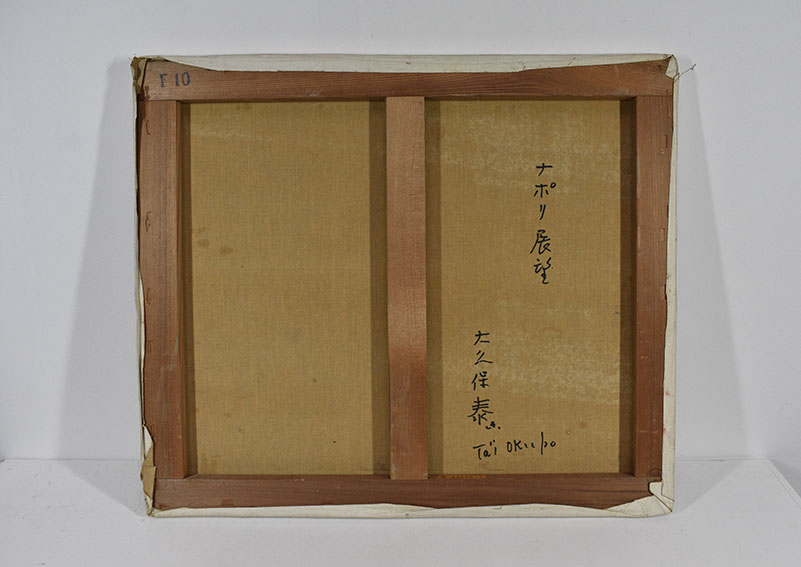 F10
ナポリ展望
大久保泰
Tai OKubo